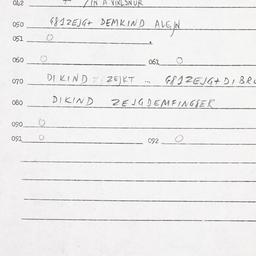 042 + /IN A VIRLSNUR
050 G&1ZEJG+ DEMKIND ALEJN
051 O .
060 O 061 O
070 DIKIND : ZEJKT ... G&1ZEJG+DIBR
080 DIKIND ZEJGDEMFINGER
090 O
091 O 092 O